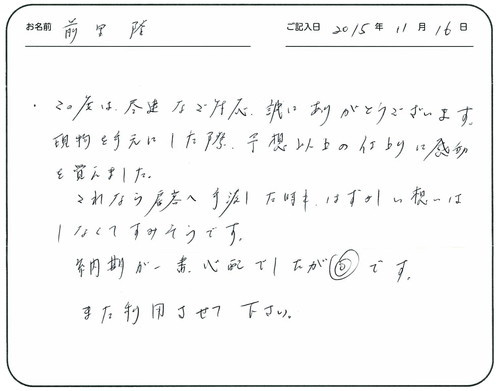 お名前 前里 隆 ご記入日 2015年 11月 16日
・この度は、尽速なご対応、誠にありがとうございます。
現物を手元にした際、予想以上の仕上りに感動
を覚えました。
これなら 客へ手渡した時も、はずかしい想いは
しなくてすみそうです。
納期が一番、心配でしたが ◎です。
また利用させて下さい。